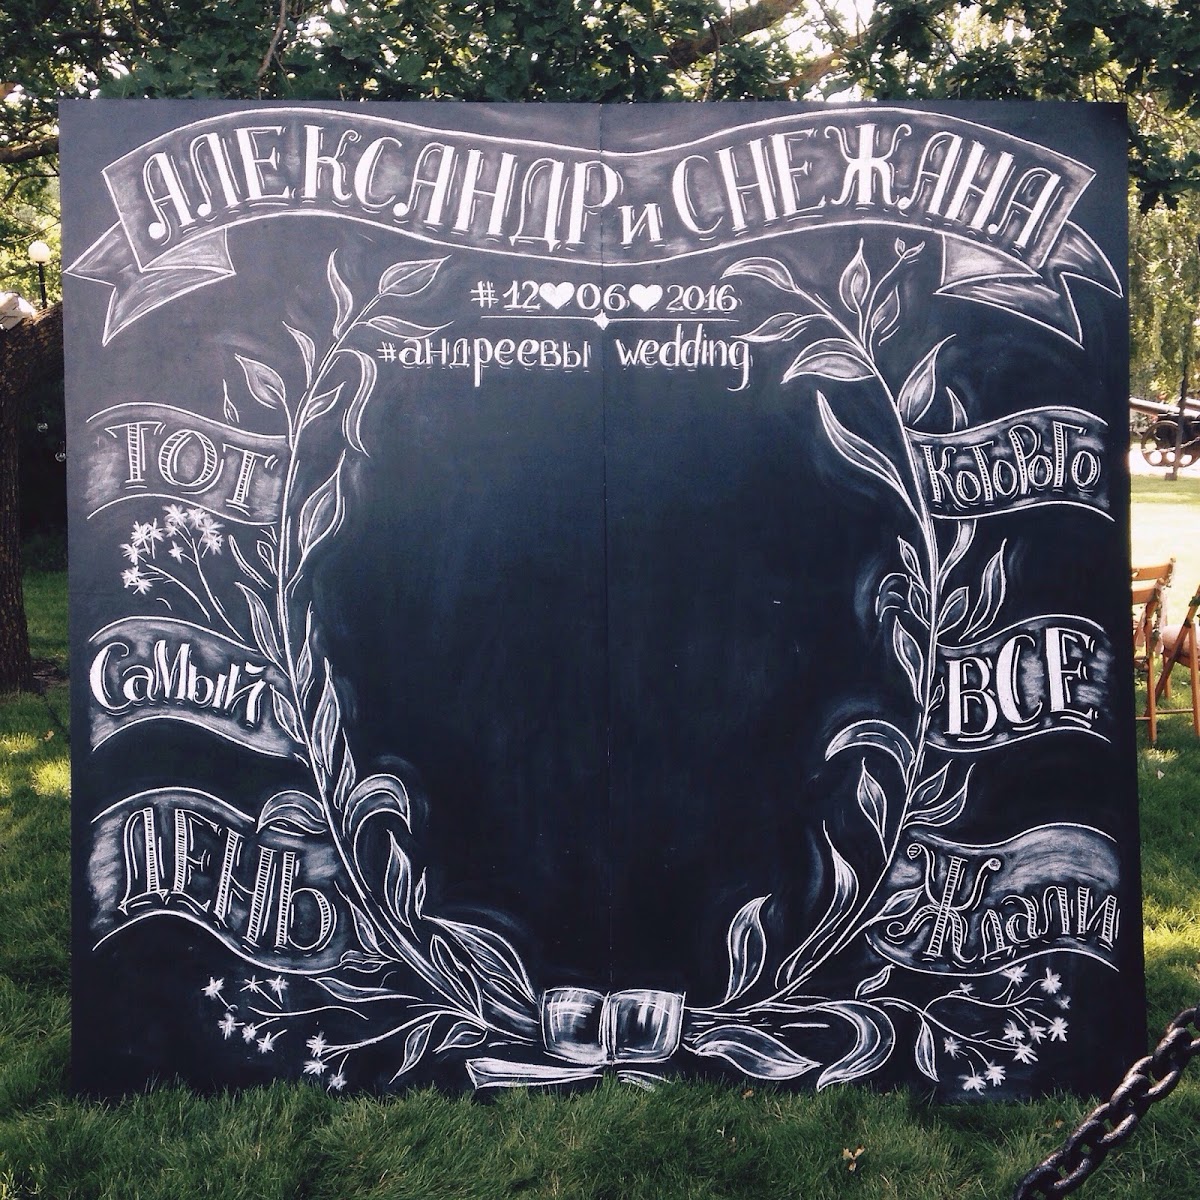 АЛЕКСАНДР и СНЕЖАНА
#12♥06♥2016
#андреевы wedding
ТОТ
Самый
ДЕНЬ
КоТоРоГо
ВСЕ
Ждали